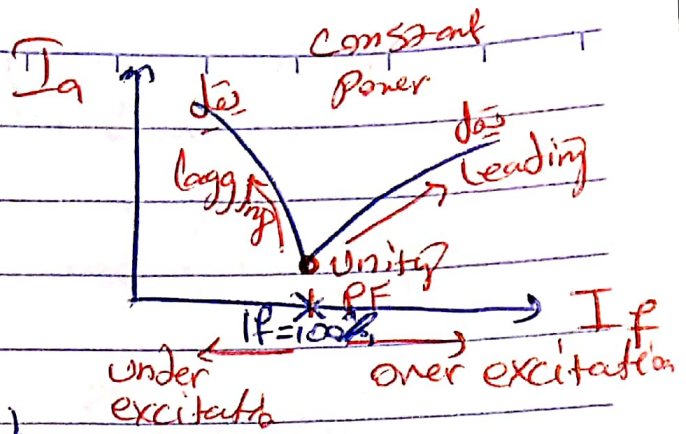 Ia
Constant
Power
lagging
Leading
Unity
PF
If=100%
If
under
excitation
over excitation